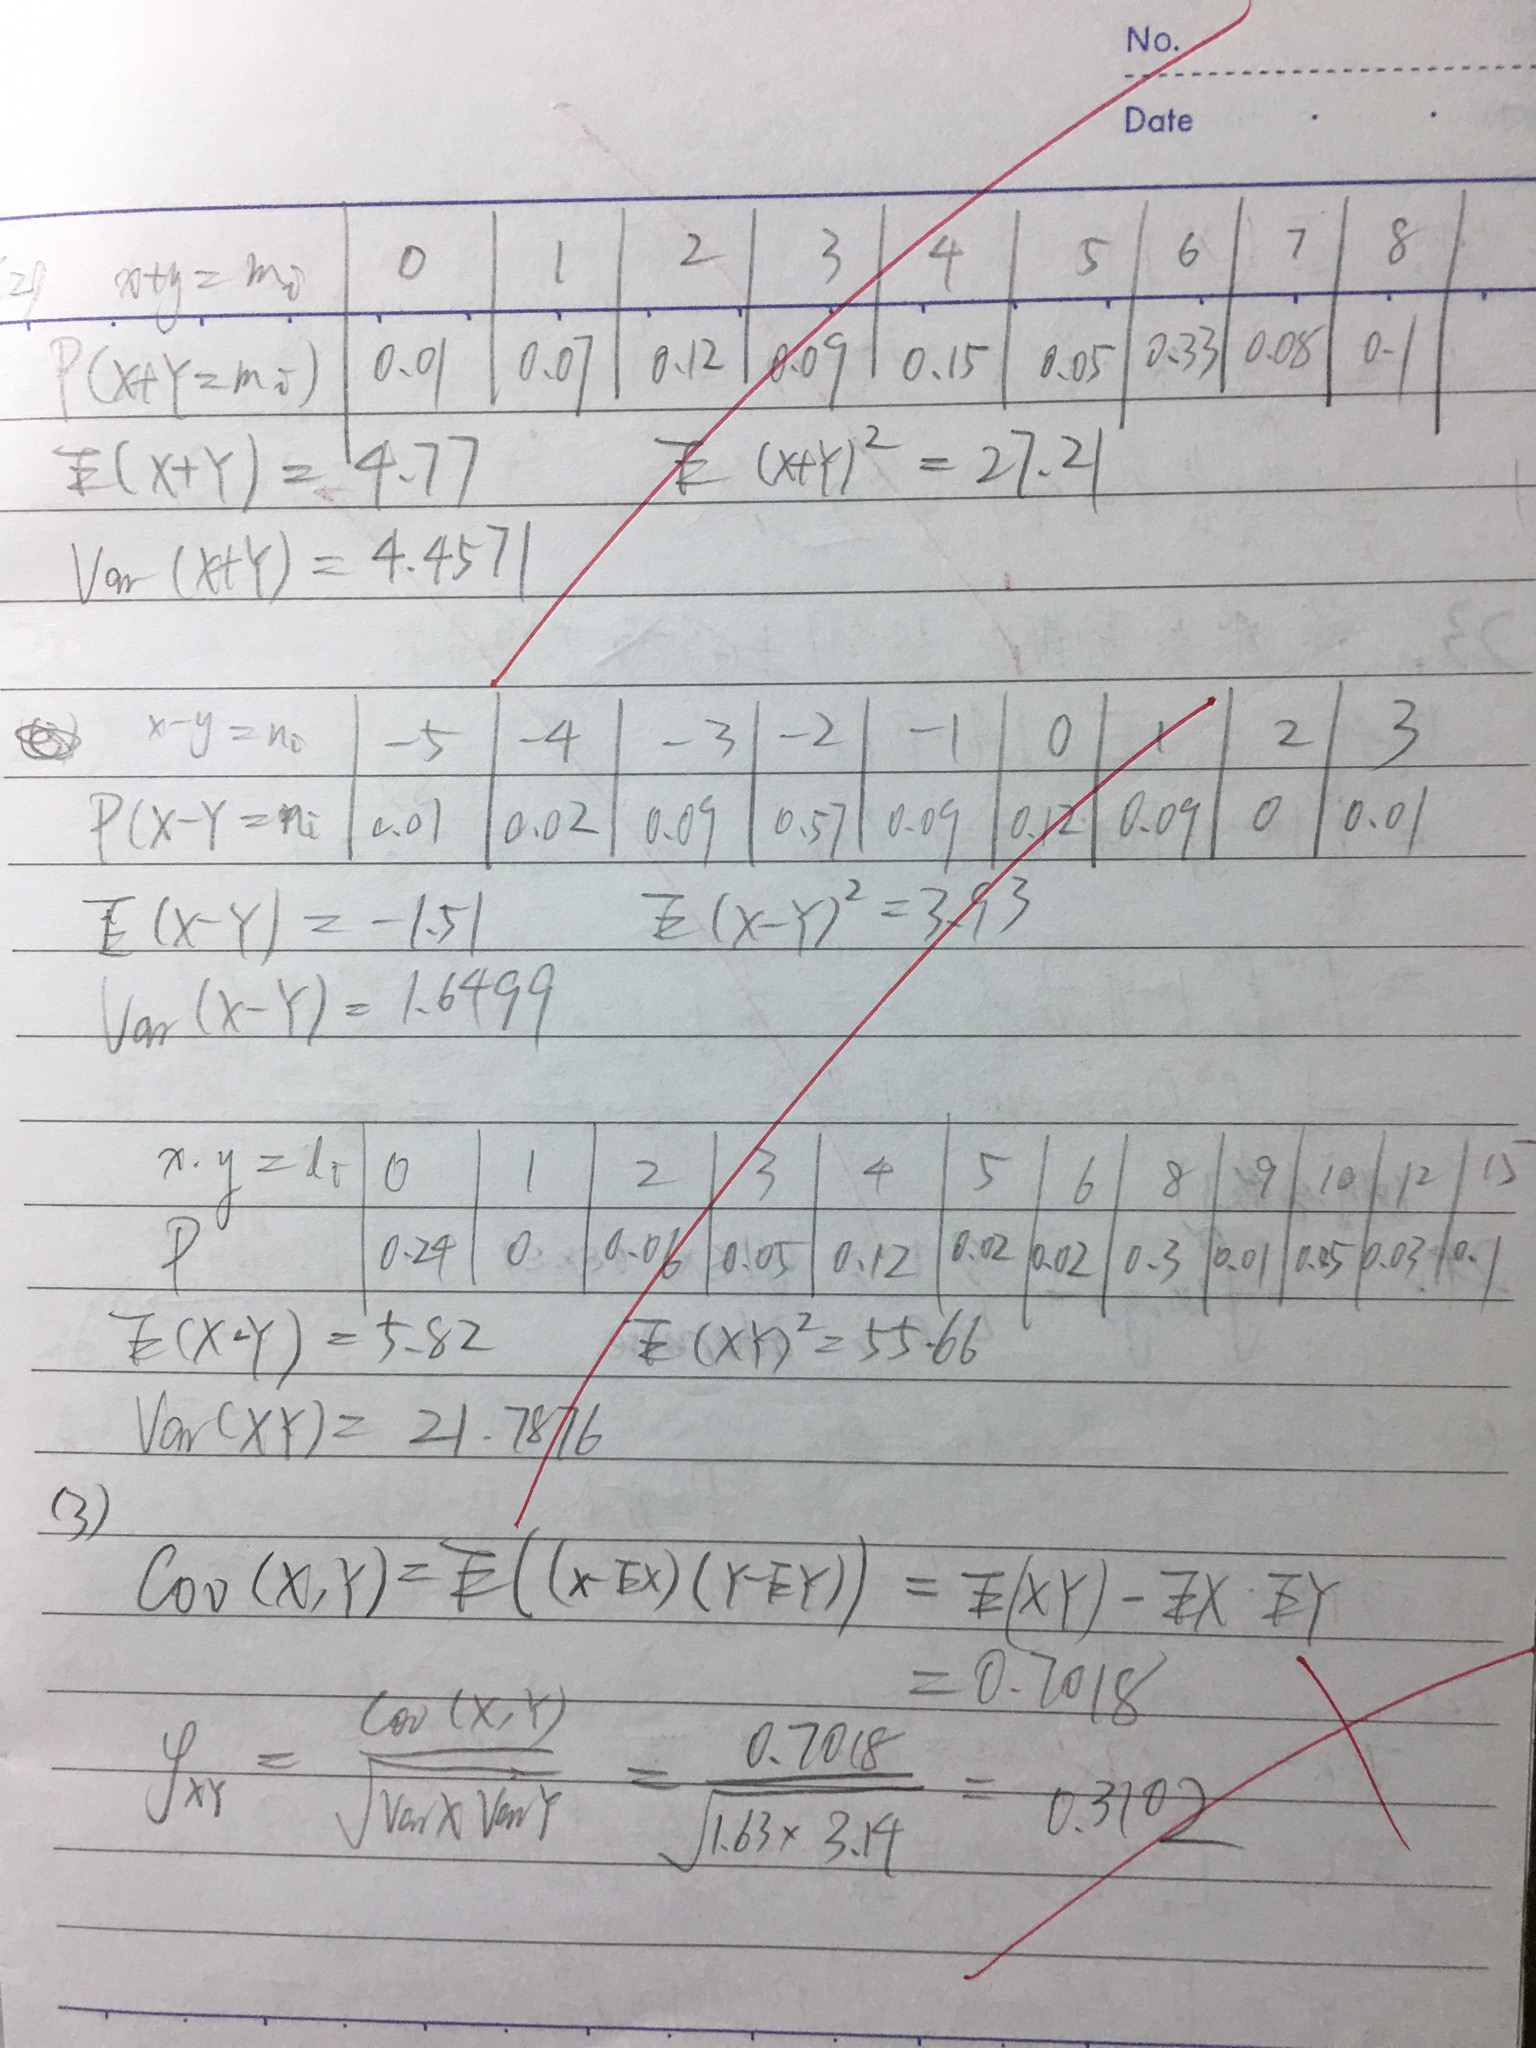 No.
Date
(2) x+y=mi 0 1 2 3 4 5 6 7 8
P(X+Y=mi) 0.01 0.07 0.12 0.09 0.15 0.05 0.33 0.08 0.1
E(X+Y) = 4.77 E(X+Y)² = 27.21
Var(X+Y) = 4.4571
x-y=ni -5 -4 -3 -2 -1 0 1 2 3
P(X-Y=ni 0.01 0.02 0.09 0.57 0.09 0.12 0.09 0 0.01
E(X-Y) = -1.51 E(X-Y)² = 3.93
Var(X-Y) = 1.6499
x.y=li 0 1 2 3 4 5 6 8 9 10 12 15
P 0.24 0 0.06 0.05 0.12 0.02 0.02 0.3 0.01 0.05 0.03 0.1
E(X·Y) = 5.82 E(XY)² = 55.66
Var(XY) = 21.7876
(3)
Cov(X,Y) = E((X-EX)(Y-EY)) = E(XY) - EX·EY
= 0.7018
ρXY = Cov(X,Y) / √VarX VarY = 0.7018 / √1.63×3.14 = 0.3102